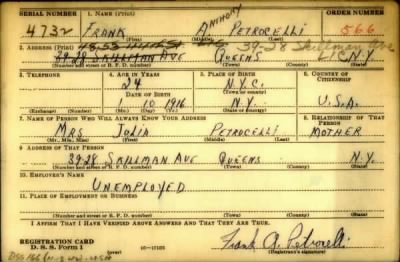 SERIAL NUMBER 1. NAME (Print) ORDER NUMBER
4732 FRANK ANTHONY PETROCELLI 566
(First) (Middle) (Last)
2. ADDRESS (Print) 39-28 Skillman Ave
39-28 SKILLMAN AVE QUEENS L.I.C. N.Y.
(Number and street or R. F. D. number) (Town) (County) (State)
3. TELEPHONE 4. AGE IN YEARS 5. PLACE OF BIRTH 6. COUNTRY OF CITIZENSHIP
24 N.Y.C.
DATE OF BIRTH (Town or county)
1 10 1916 N.Y. U.S.A.
(Exchange) (Number) (Mo.) (Day) (Yr.) (State or country)
7. NAME OF PERSON WHO WILL ALWAYS KNOW YOUR ADDRESS 8. RELATIONSHIP OF THAT PERSON
MRS JULIA PETROCELLI MOTHER
(Mr., Mrs., Miss) (First) (Middle) (Last)
9. ADDRESS OF THAT PERSON
39-28 SKILLMAN AVE QUEENS N.Y.
(Number and street or R. F. D. number) (Town) (County) (State)
10. EMPLOYER'S NAME
UNEMPLOYED
11. PLACE OF EMPLOYMENT OR BUSINESS
(Number and street or R. F. D. number) (Town) (County) (State)
I AFFIRM THAT I HAVE VERIFIED ABOVE ANSWERS AND THAT THEY ARE TRUE.
REGISTRATION CARD
D. S. S. Form 1 Frank A. Petrocelli
(Registrant's signature)